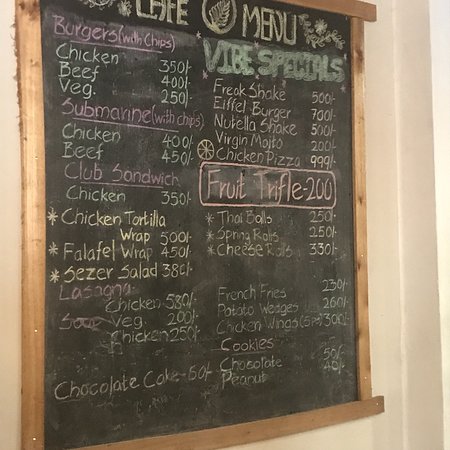 CAFE MENU
Burgers(with chips)
Chicken 350/-
Beef 400/-
Veg. 250/-
Submarine(with chips)
Chicken 400/-
Beef 450/-
Club Sandwich
Chicken 350/-
* Chicken Tortilla
Wrap 500/-
* Falafel Wrap 450/-
* Sezer Salad 380/-
Lasagna
Chicken 580/-
Soup Veg. 200/-
Chicken 250/-
Chocolate Cake-50/-
VIBE SPECIALS
Freak Shake 500/-
Eiffel Burger 700/-
Nutella Shake 500/-
Virgin Mojito 200/-
Chicken Pizza 999/-
Fruit Trifle-200
* Thai Balls 250/-
* Spring Rolls 250/-
* Cheese Rolls 330/-
French Fries 230/-
Potato Wedges 260/-
Chicken Wings 300/-
Cookies
Chocolate 50/-
Peanut 40/-